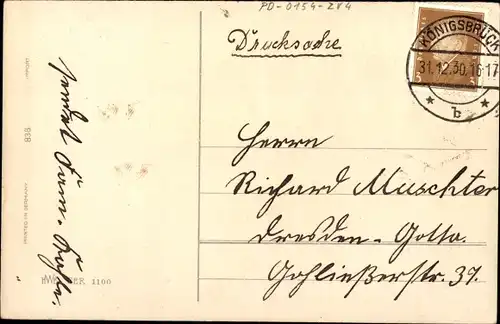 PD-0154-284
Drucksache
KÖNIGSBRÜCK
31.12.30.16-17
* b *
Herrn
Richard Muschter
Dresden-Gotta.
Gohließerstr. 39.
sendet Fam. Kahle.
836
1100